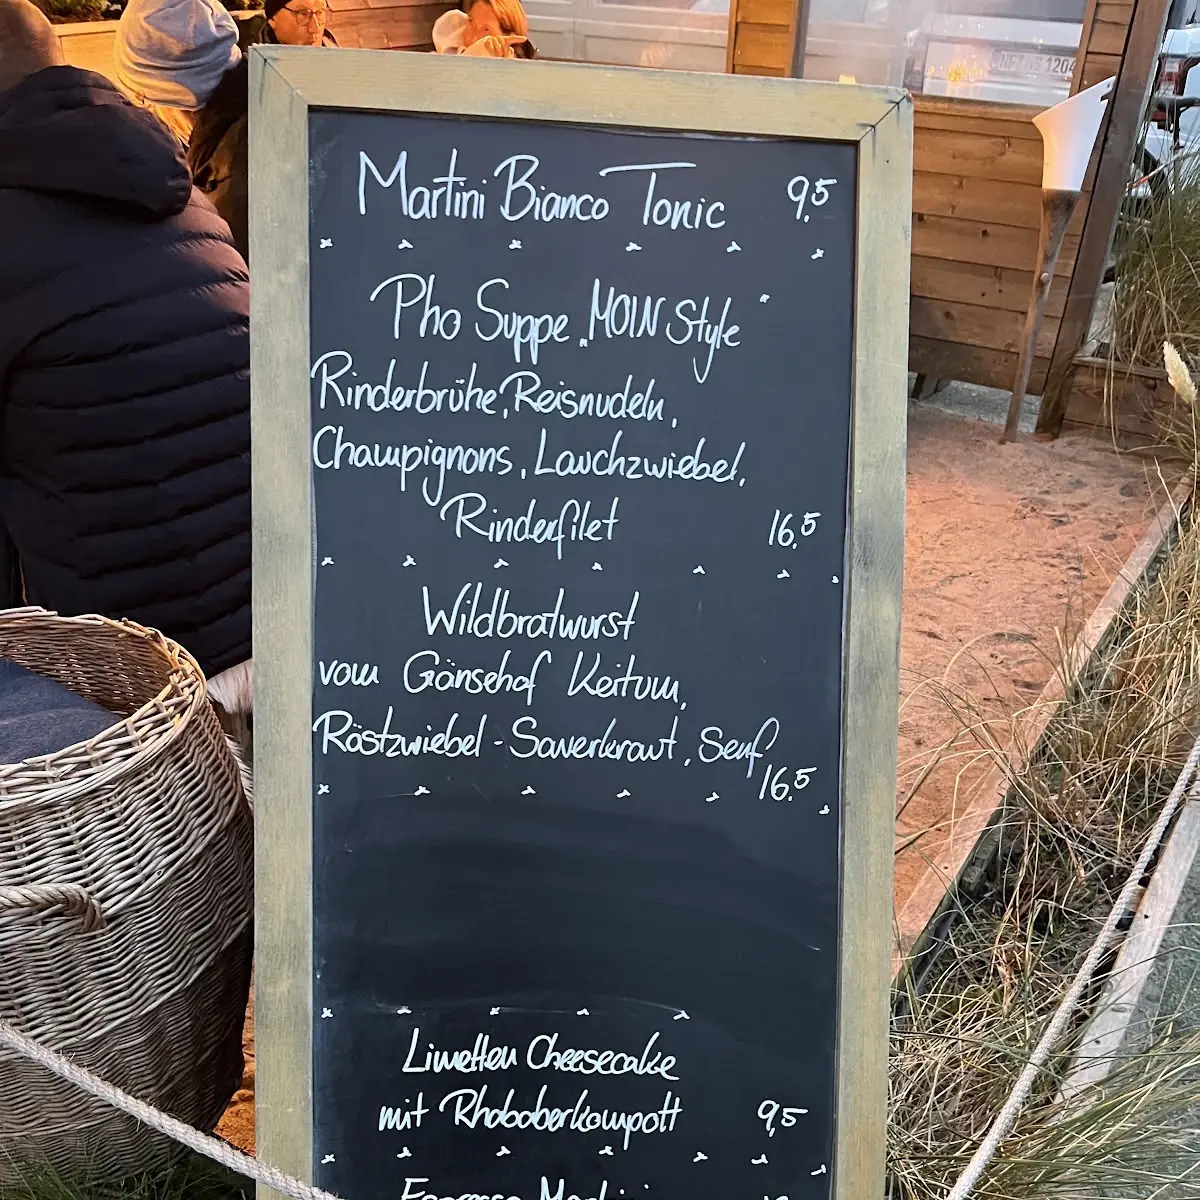 Martini Bianco Tonic 9,5
Pho Suppe „MOIN Style“
Rinderbrühe, Reisnudeln,
Champignons, Lauchzwiebel,
Rinderfilet 16,5
Wildbratwurst
vom Gänsehof Keitum,
Röstzwiebel-Sauerkraut, Senf
16,5
Limetten Cheesecake
mit Rhababerkompott 9,5
Espresso Martini